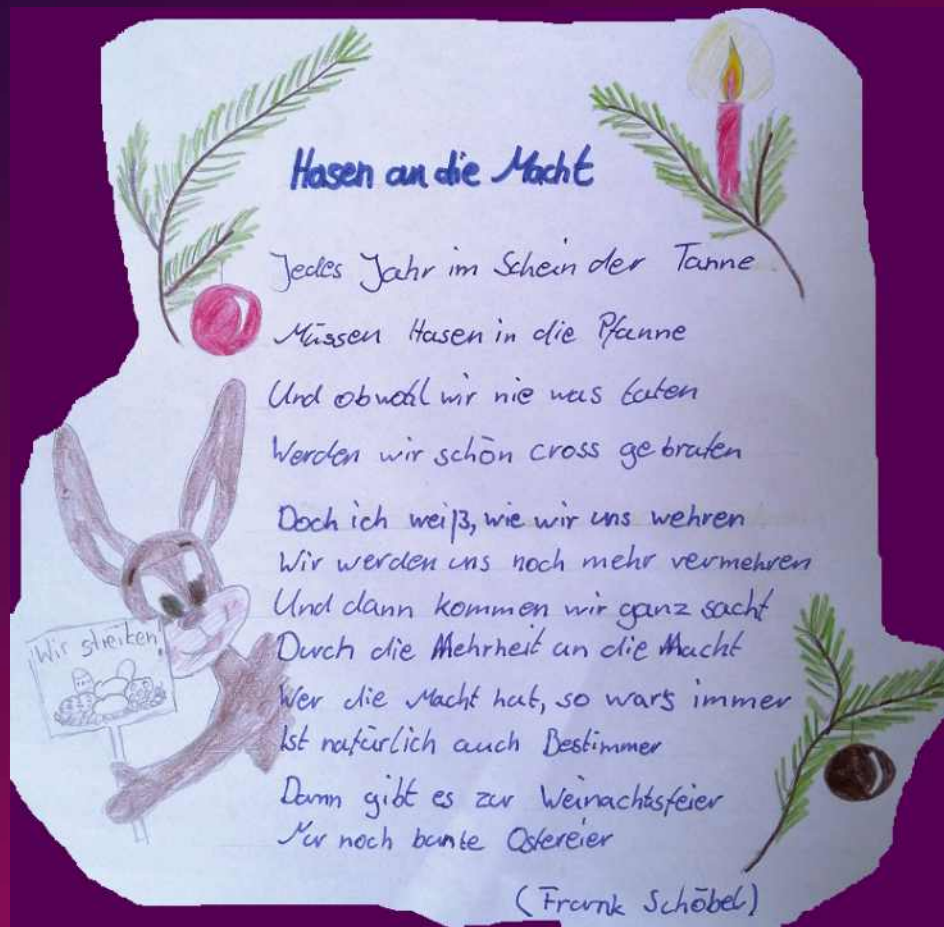 Hasen an die Macht
Jedes Jahr im Schein der Tanne
Müssen Hasen in die Pfanne
Und obwohl wir nie was taten
Werden wir schön cross gebraten
Doch ich weiß, wie wir uns wehren
Wir werden uns noch mehr vermehren
Und dann kommen wir ganz sacht
Durch die Mehrheit an die Macht
Wer die Macht hat, so wars immer
Ist natürlich auch Bestimmer
Dann gibt es zur Weinachtsfeier
Nur noch bunte Ostereier
(Frank Schöbel)
Wir streiken!